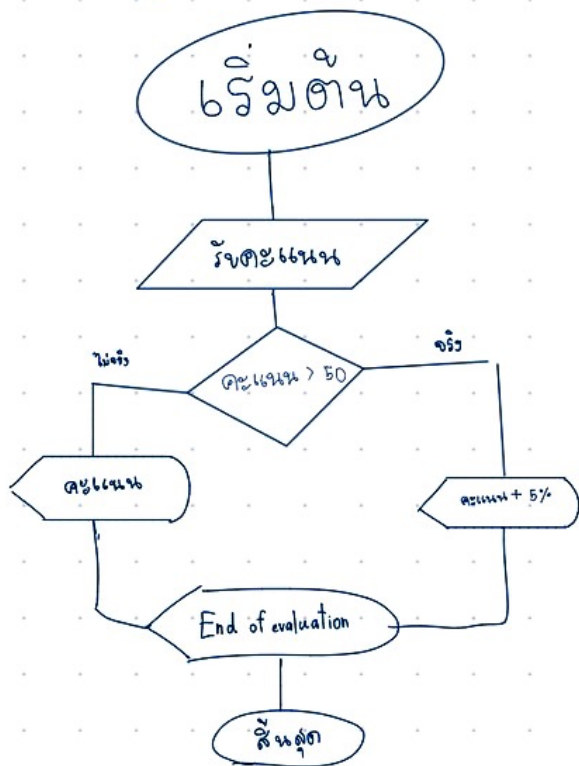 เริ่มต้น
รับคะแนน
คะแนน > 50
ไม่จริง
จริง
คะแนน
คะแนน + 5%
End of evaluation
สิ้นสุด